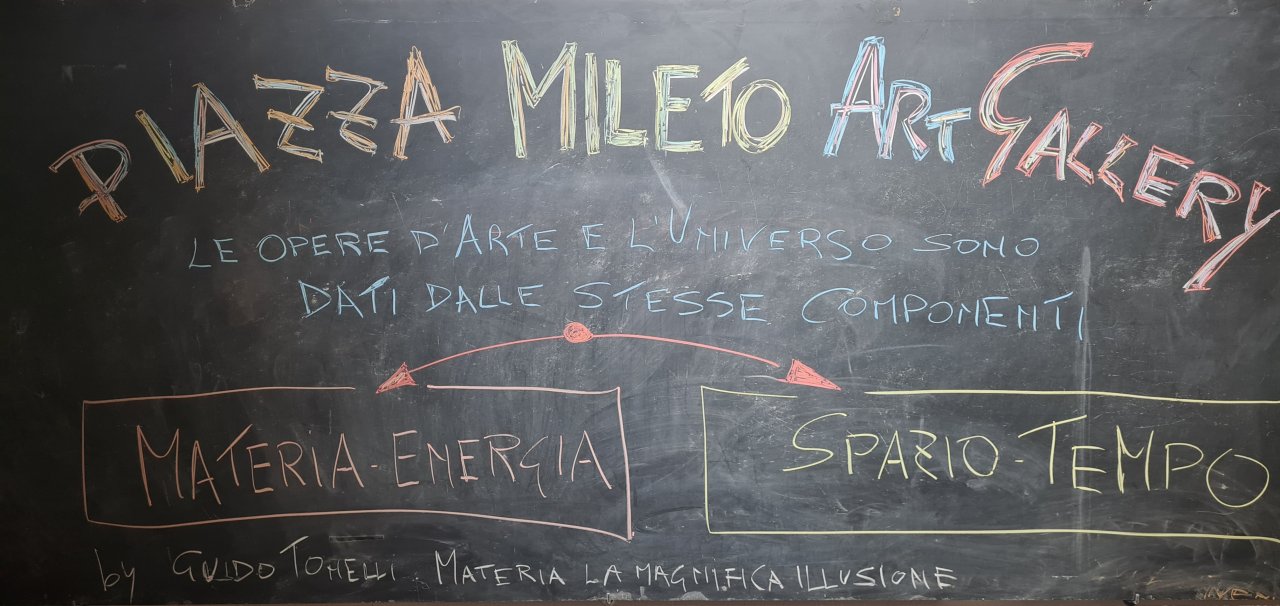 PIAZZA MILETO ART GALLERY
LE OPERE D'ARTE E L'UNIVERSO SONO
DATI DALLE STESSE COMPONENTI
MATERIA-ENERGIA
SPAZIO-TEMPO
by GUIDO TONELLI. MATERIA LA MAGNIFICA ILLUSIONE